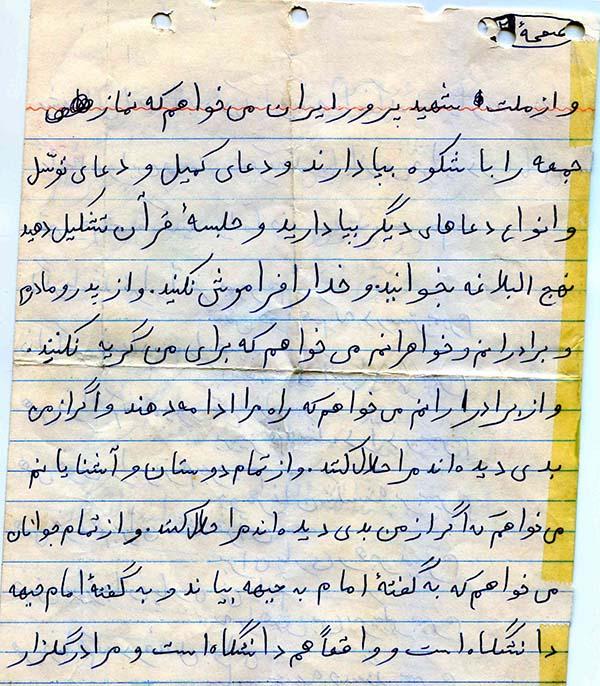 صفحهٔ ۲
و از ملت شهید پرور ایران می خواهم که نماز
جمعه را با شکوه بپا دارند و دعای کمیل و دعای توسّل
و انواع دعاهای دیگر بپا دارید و جلسهٔ قرآن تشکیل دهید
نهج البلاغه بخوانید و خدا را فراموش نکنید. و از پدر و مادرم
و برادرانم و خواهرانم می خواهم که برای من گریه نکنند.
و از برادرارانم می خواهم که راه مرا ادامه دهند و اگر از من
بدی دیده اند مرا حلال کنند. و از تمام دوستان و آشنایانم
می خواهم که اگر از من بدی دیده اند مرا حلال کنند. و از تمام جوانان
می خواهم که به گفتهٔ امام به جبهه بیاند و به گفتهٔ امام جبهه
دانشگاه است و واقعاً هم دانشگاه است و مرا در گلزار